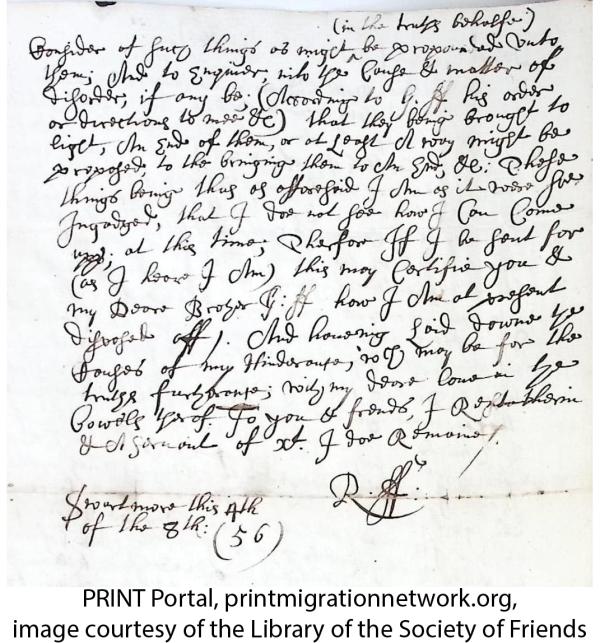 (in the truths behalfe)
Consider of such things as might be propounded unto
them; And to Enquier, into the Cause & matter of
disorder, if any be; (According to G. ff his order
or directions to mee &c) that they being brought to
light, An End of them, or at Least A way might be
proposed, to the bringing them to An End, &c: These
things being thus as afforesaid I Am as it were soe
Ingadged, that I doe not see how I Can Come
upp; at this time; Therfor If I be sent for
(as I heare I Am) this may Certifie you &
my Deare Brother G: ff how I Am at present
disposed off). And haveing Laid downe the
Causes of my Hinderance, wch may be for the
truths furtherance; with my deare Love in the
bowells therof. To you & frends, I Rest therin
& A Servant of xt. I doe Remaine /.
R. ffr:
Swartmore this 4th
of the 8th: (56)
PRINT Portal, printmigrationnetwork.org,
image courtesy of the Library of the Society of Friends